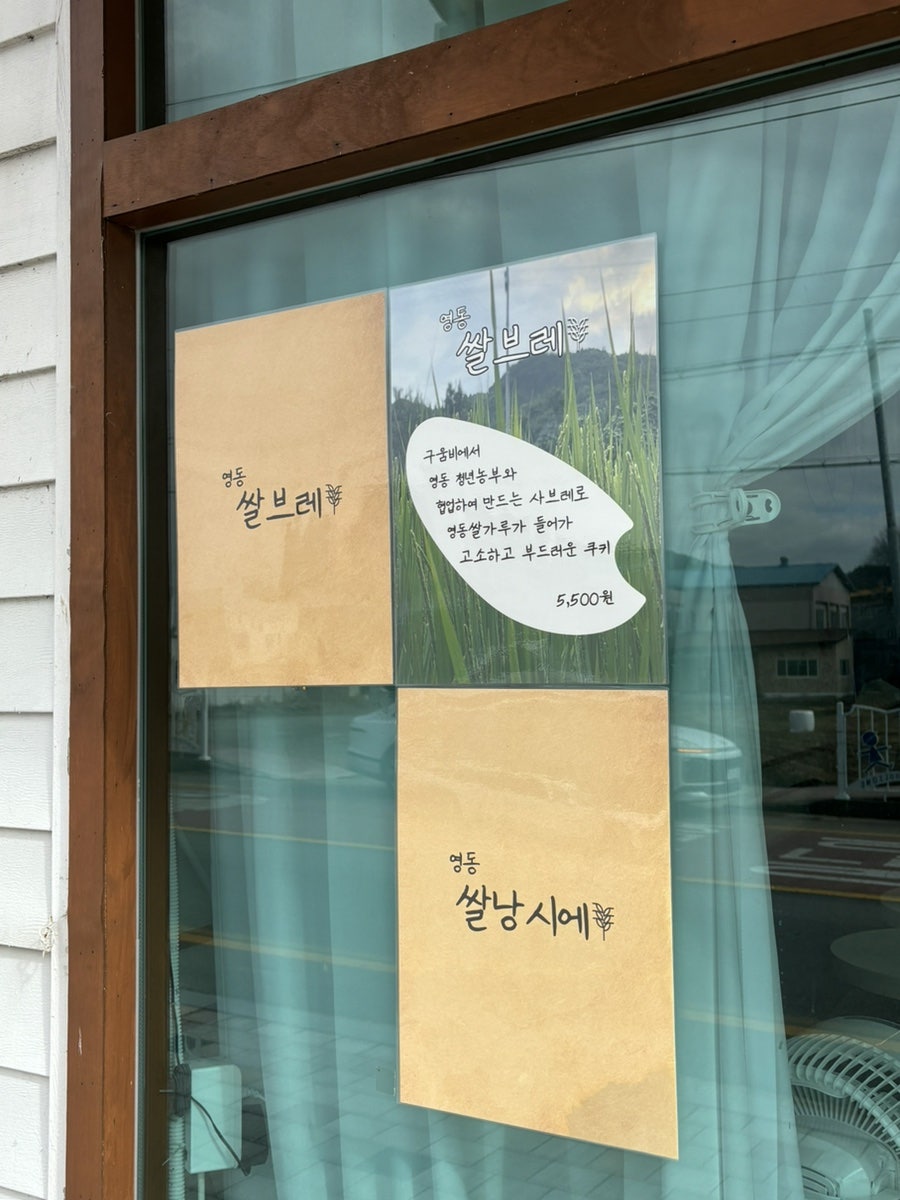 영동
쌀브레
영동
쌀브레
구움비에서
영동 청년농부와
협업하여 만드는 사브레로
영동쌀가루가 들어가
고소하고 부드러운 쿠키
5,500원
영동
쌀낭시에